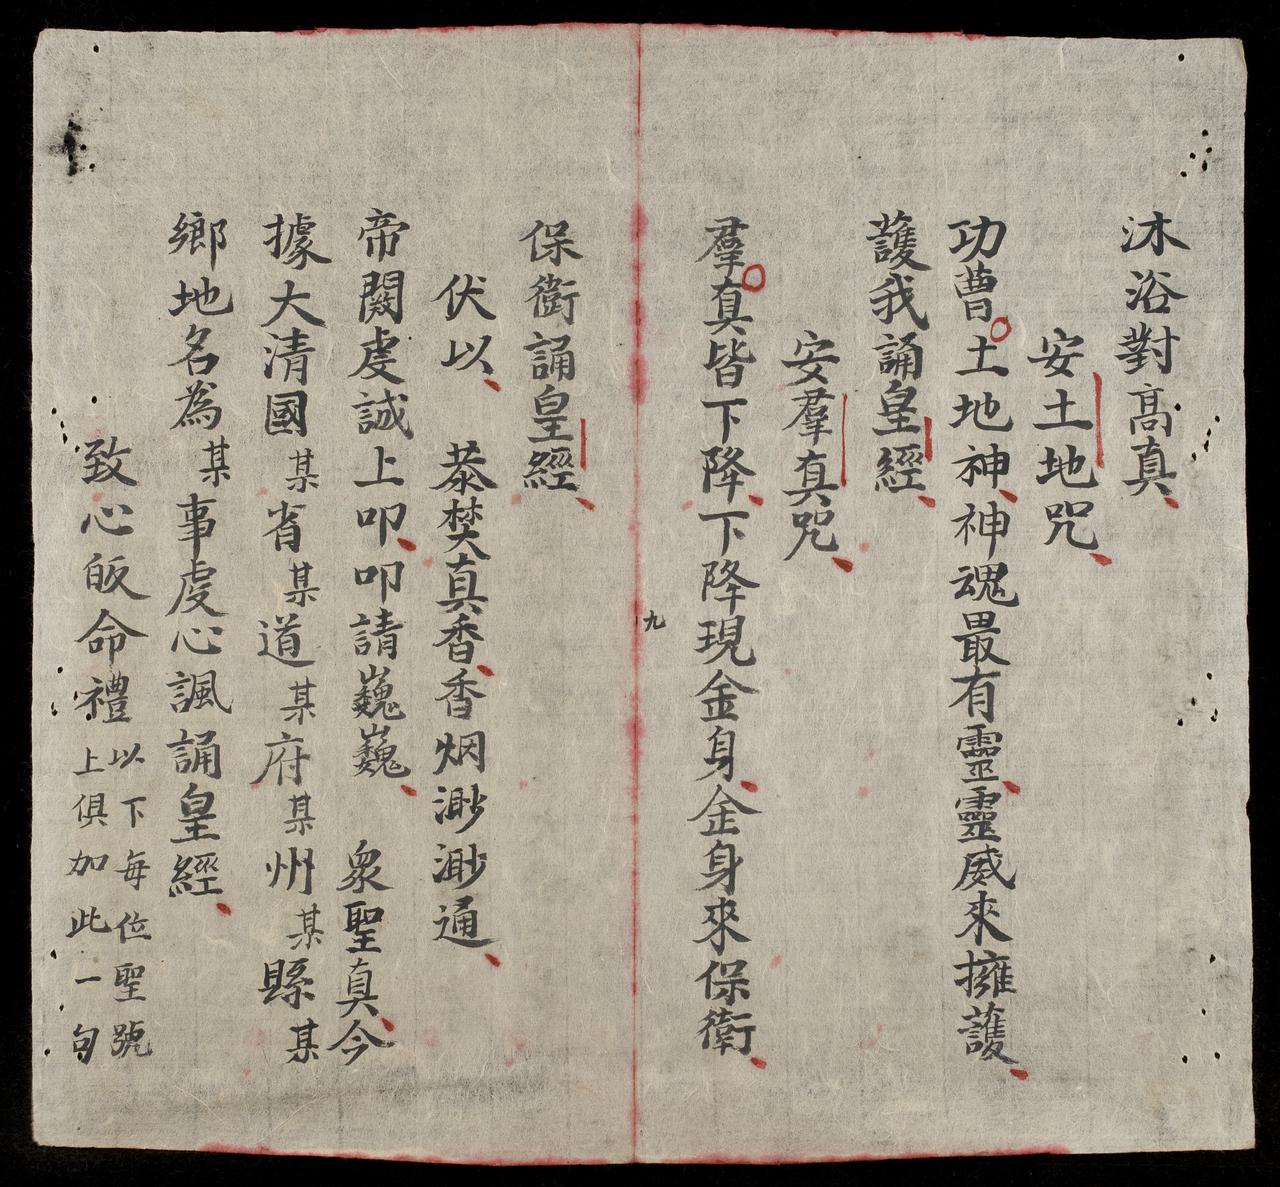 沐浴對高真
安土地咒
功曹土地神神魂最有靈靈威來擁護
護我誦皇經
安羣真咒
羣真皆下降下降現金身金身來保衛
九
保衛誦皇經
伏以 恭焚真香香烟渺渺通
帝闕虔誠上叩叩請巍巍 衆聖真今
據大清國某省某道某府某州某縣某
鄉地名為某事虔心諷誦皇經
致心皈命禮
以下每位聖號
上俱加此一句